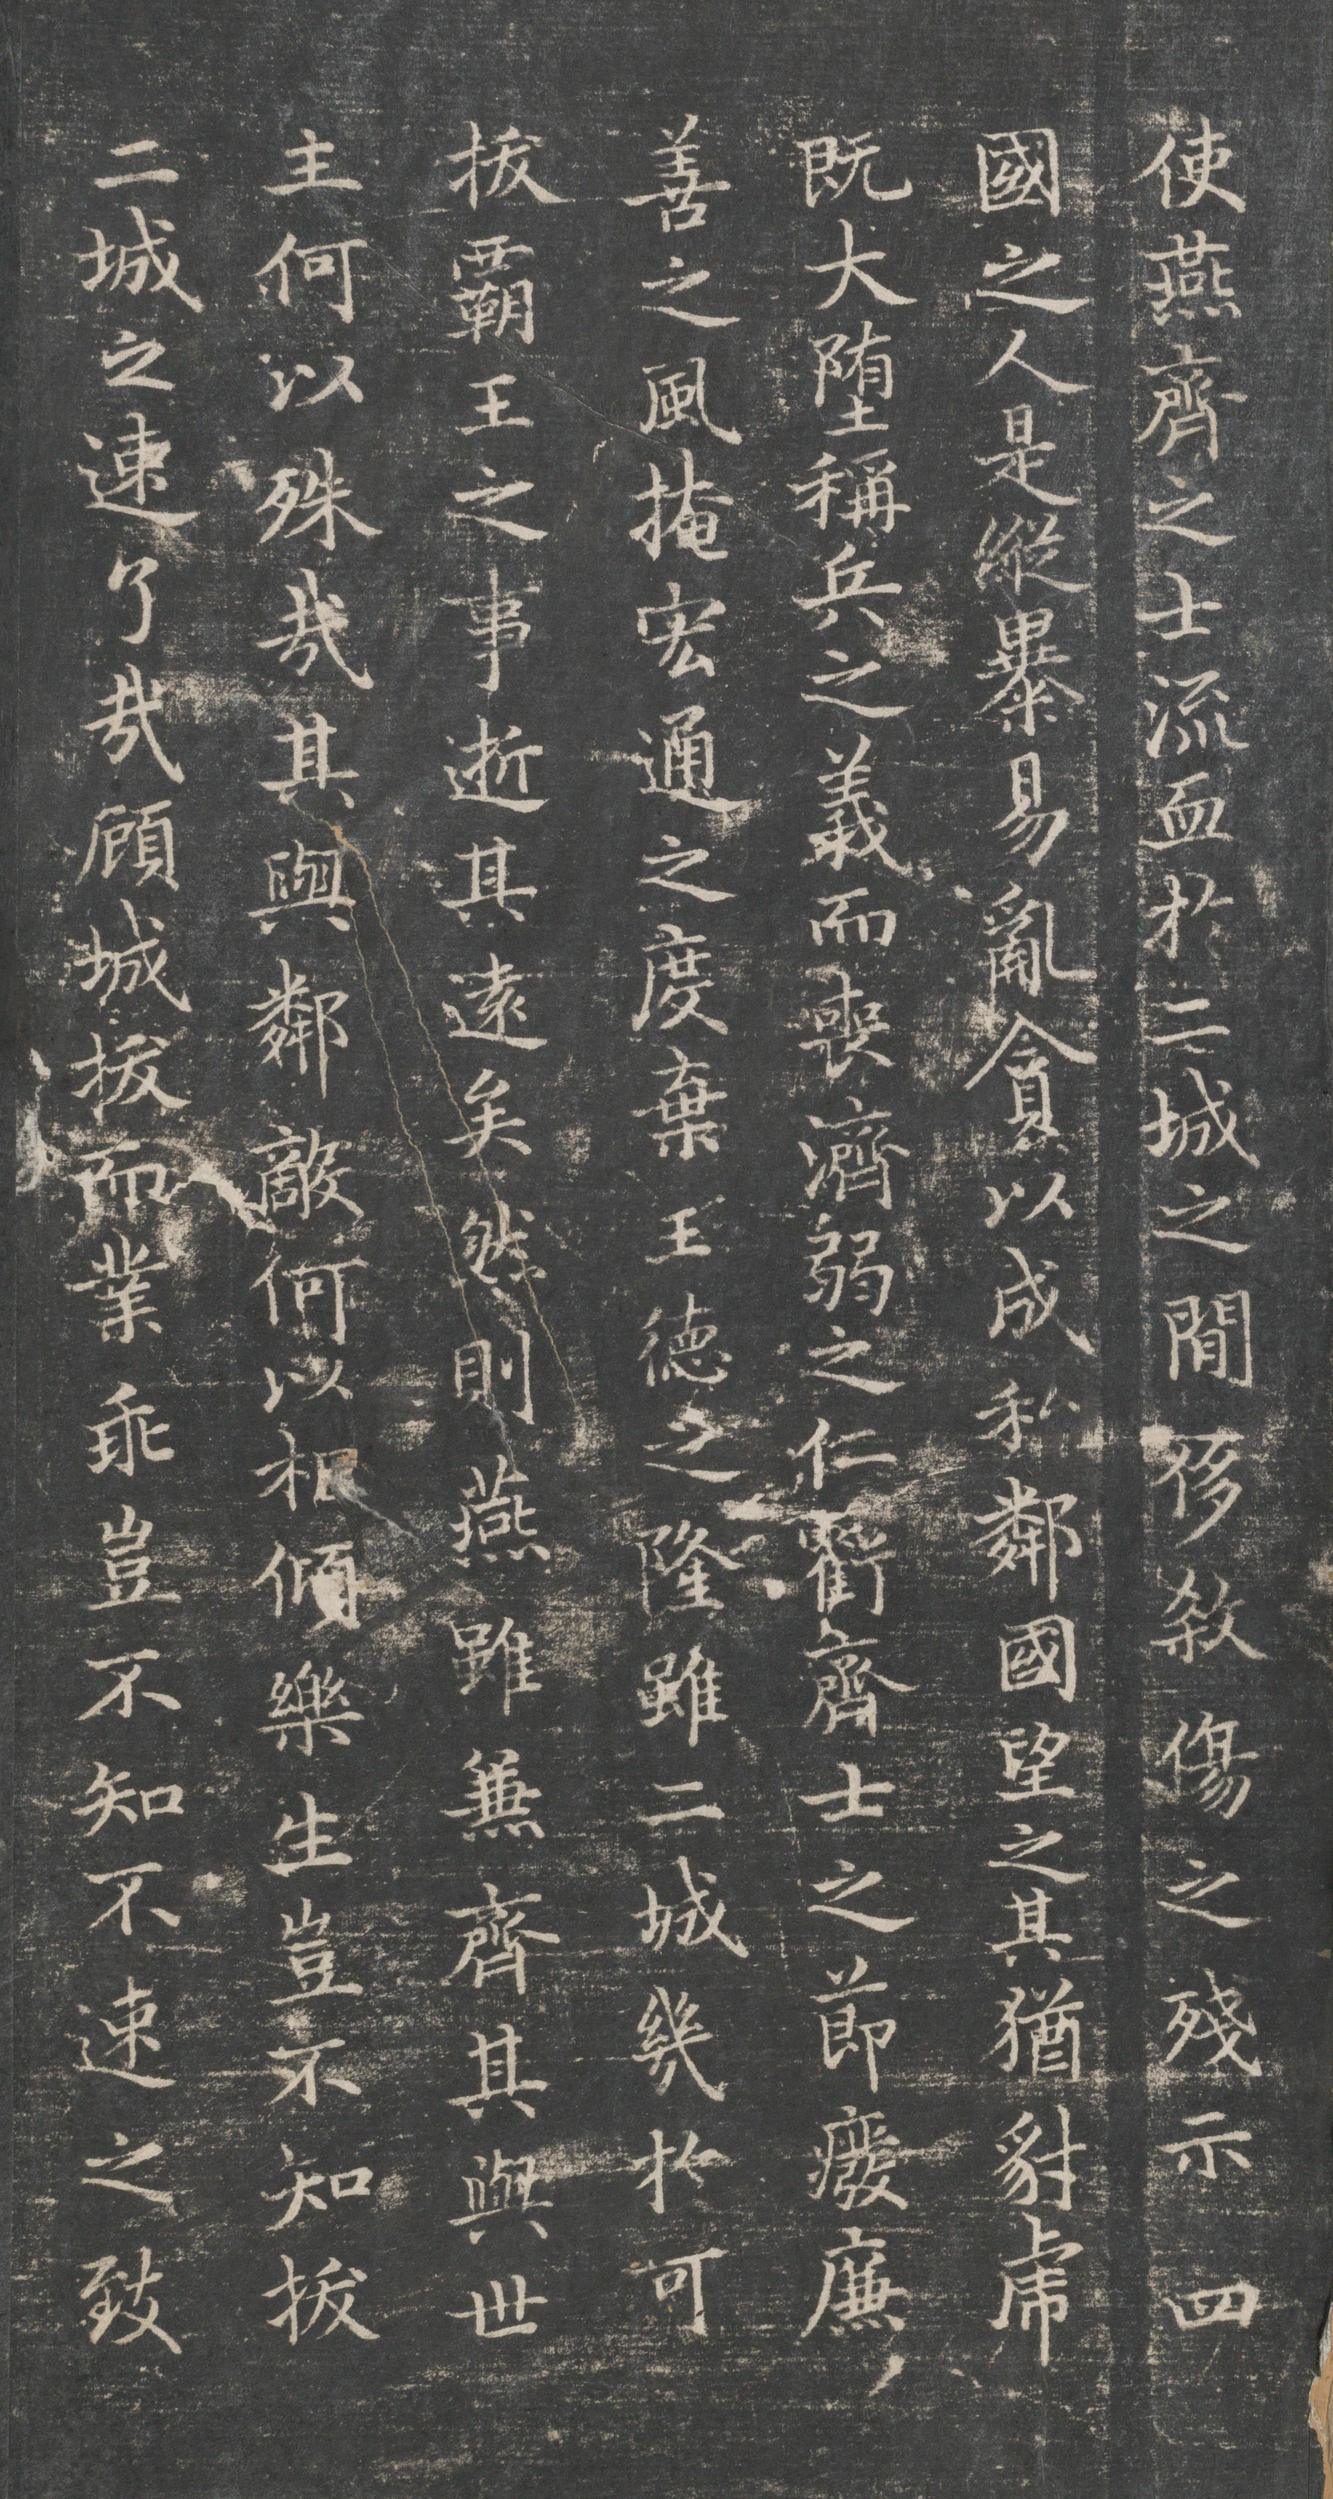 使燕齊之士流血於二城之間侈殺傷之殘示四
國之人是縱暴易亂貪以成私鄰國望之其猶豺虎
既大墮稱兵之義而喪濟弱之仁虧齊士之節廢廉
善之風掩宏通之度棄王德之隆雖二城幾於可
拔霸王之事逝其遠矣然則燕雖兼齊其與世
主何以殊哉其與鄰敵何以相傾樂生豈不知拔
二城之速了哉顧城拔而業乖豈不知不速之致